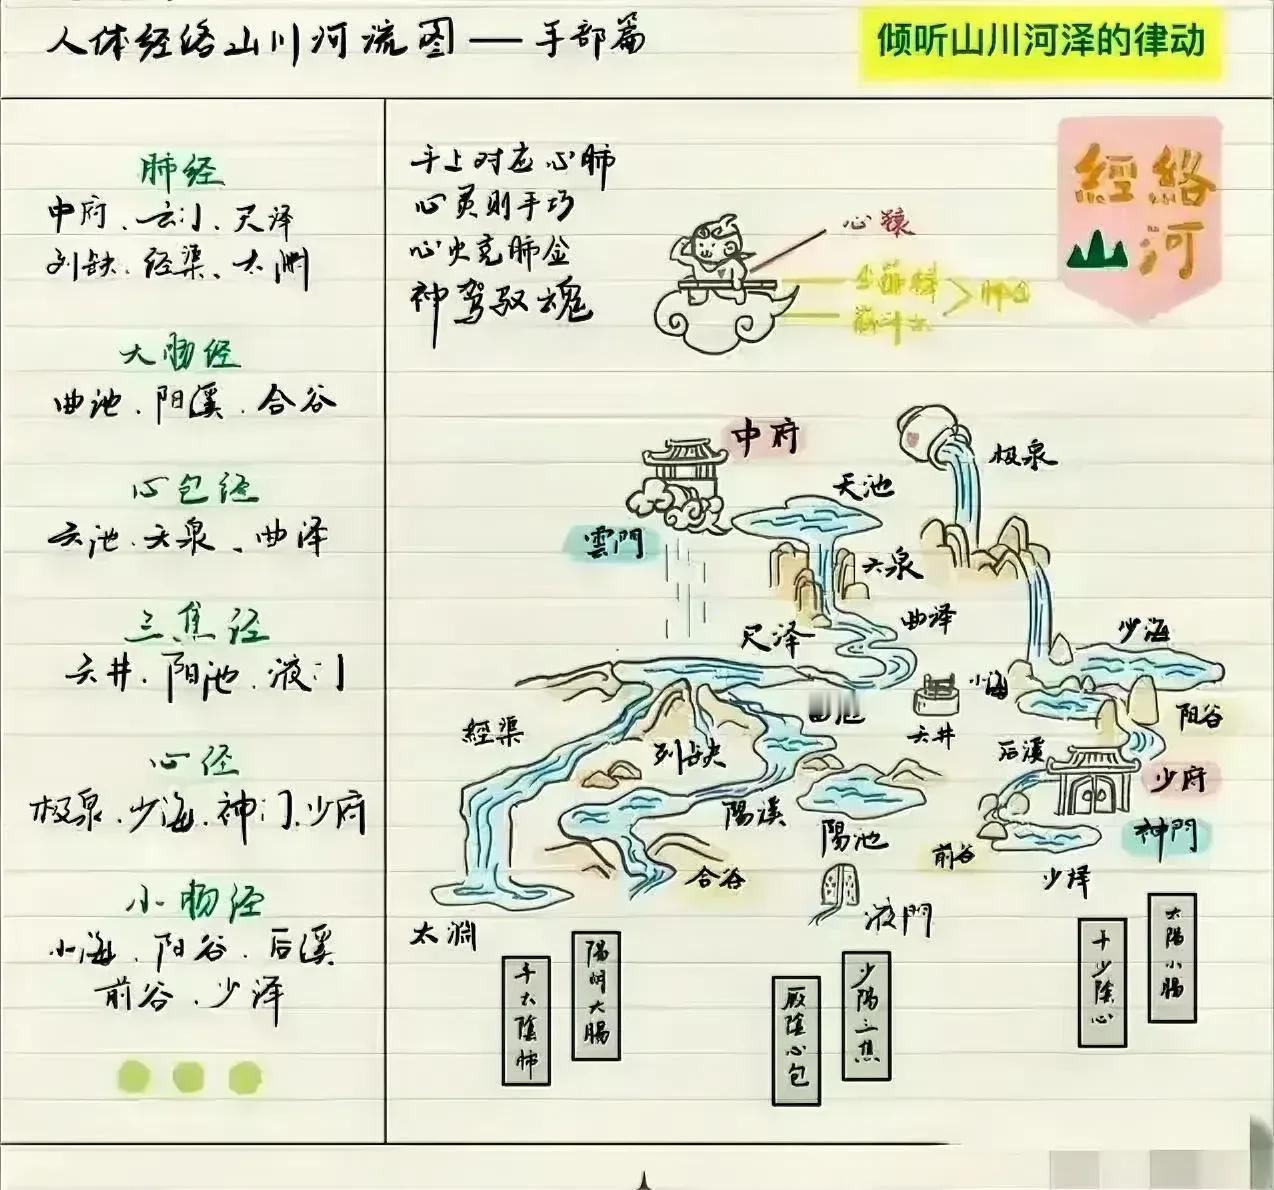 人体经络山川河流图 — 手部篇
倾听山川河泽的律动
肺经
中府、云门、尺泽
列缺、经渠、太渊
大肠经
曲池、阳溪、合谷
心包经
天池、天泉、曲泽
三焦经
天井、阳池、液门
心经
极泉、少海、神门、少府
小肠经
小海、阳谷、后溪
前谷、少泽
手上对应心肺
心灵则手巧
心火克肺金
神驾驭魂
心猿
經絡
河
中府
極泉
天池
雲門
天泉
尺泽
曲泽
少海
小海
經渠
列缺
天井
后溪
阳谷
少府
陽溪
陽池
前谷
神門
合谷
少泽
液門
太淵
手太陰肺
陽明大腸
厥陰心包
少陽三焦
手少陰心
太陽小腸